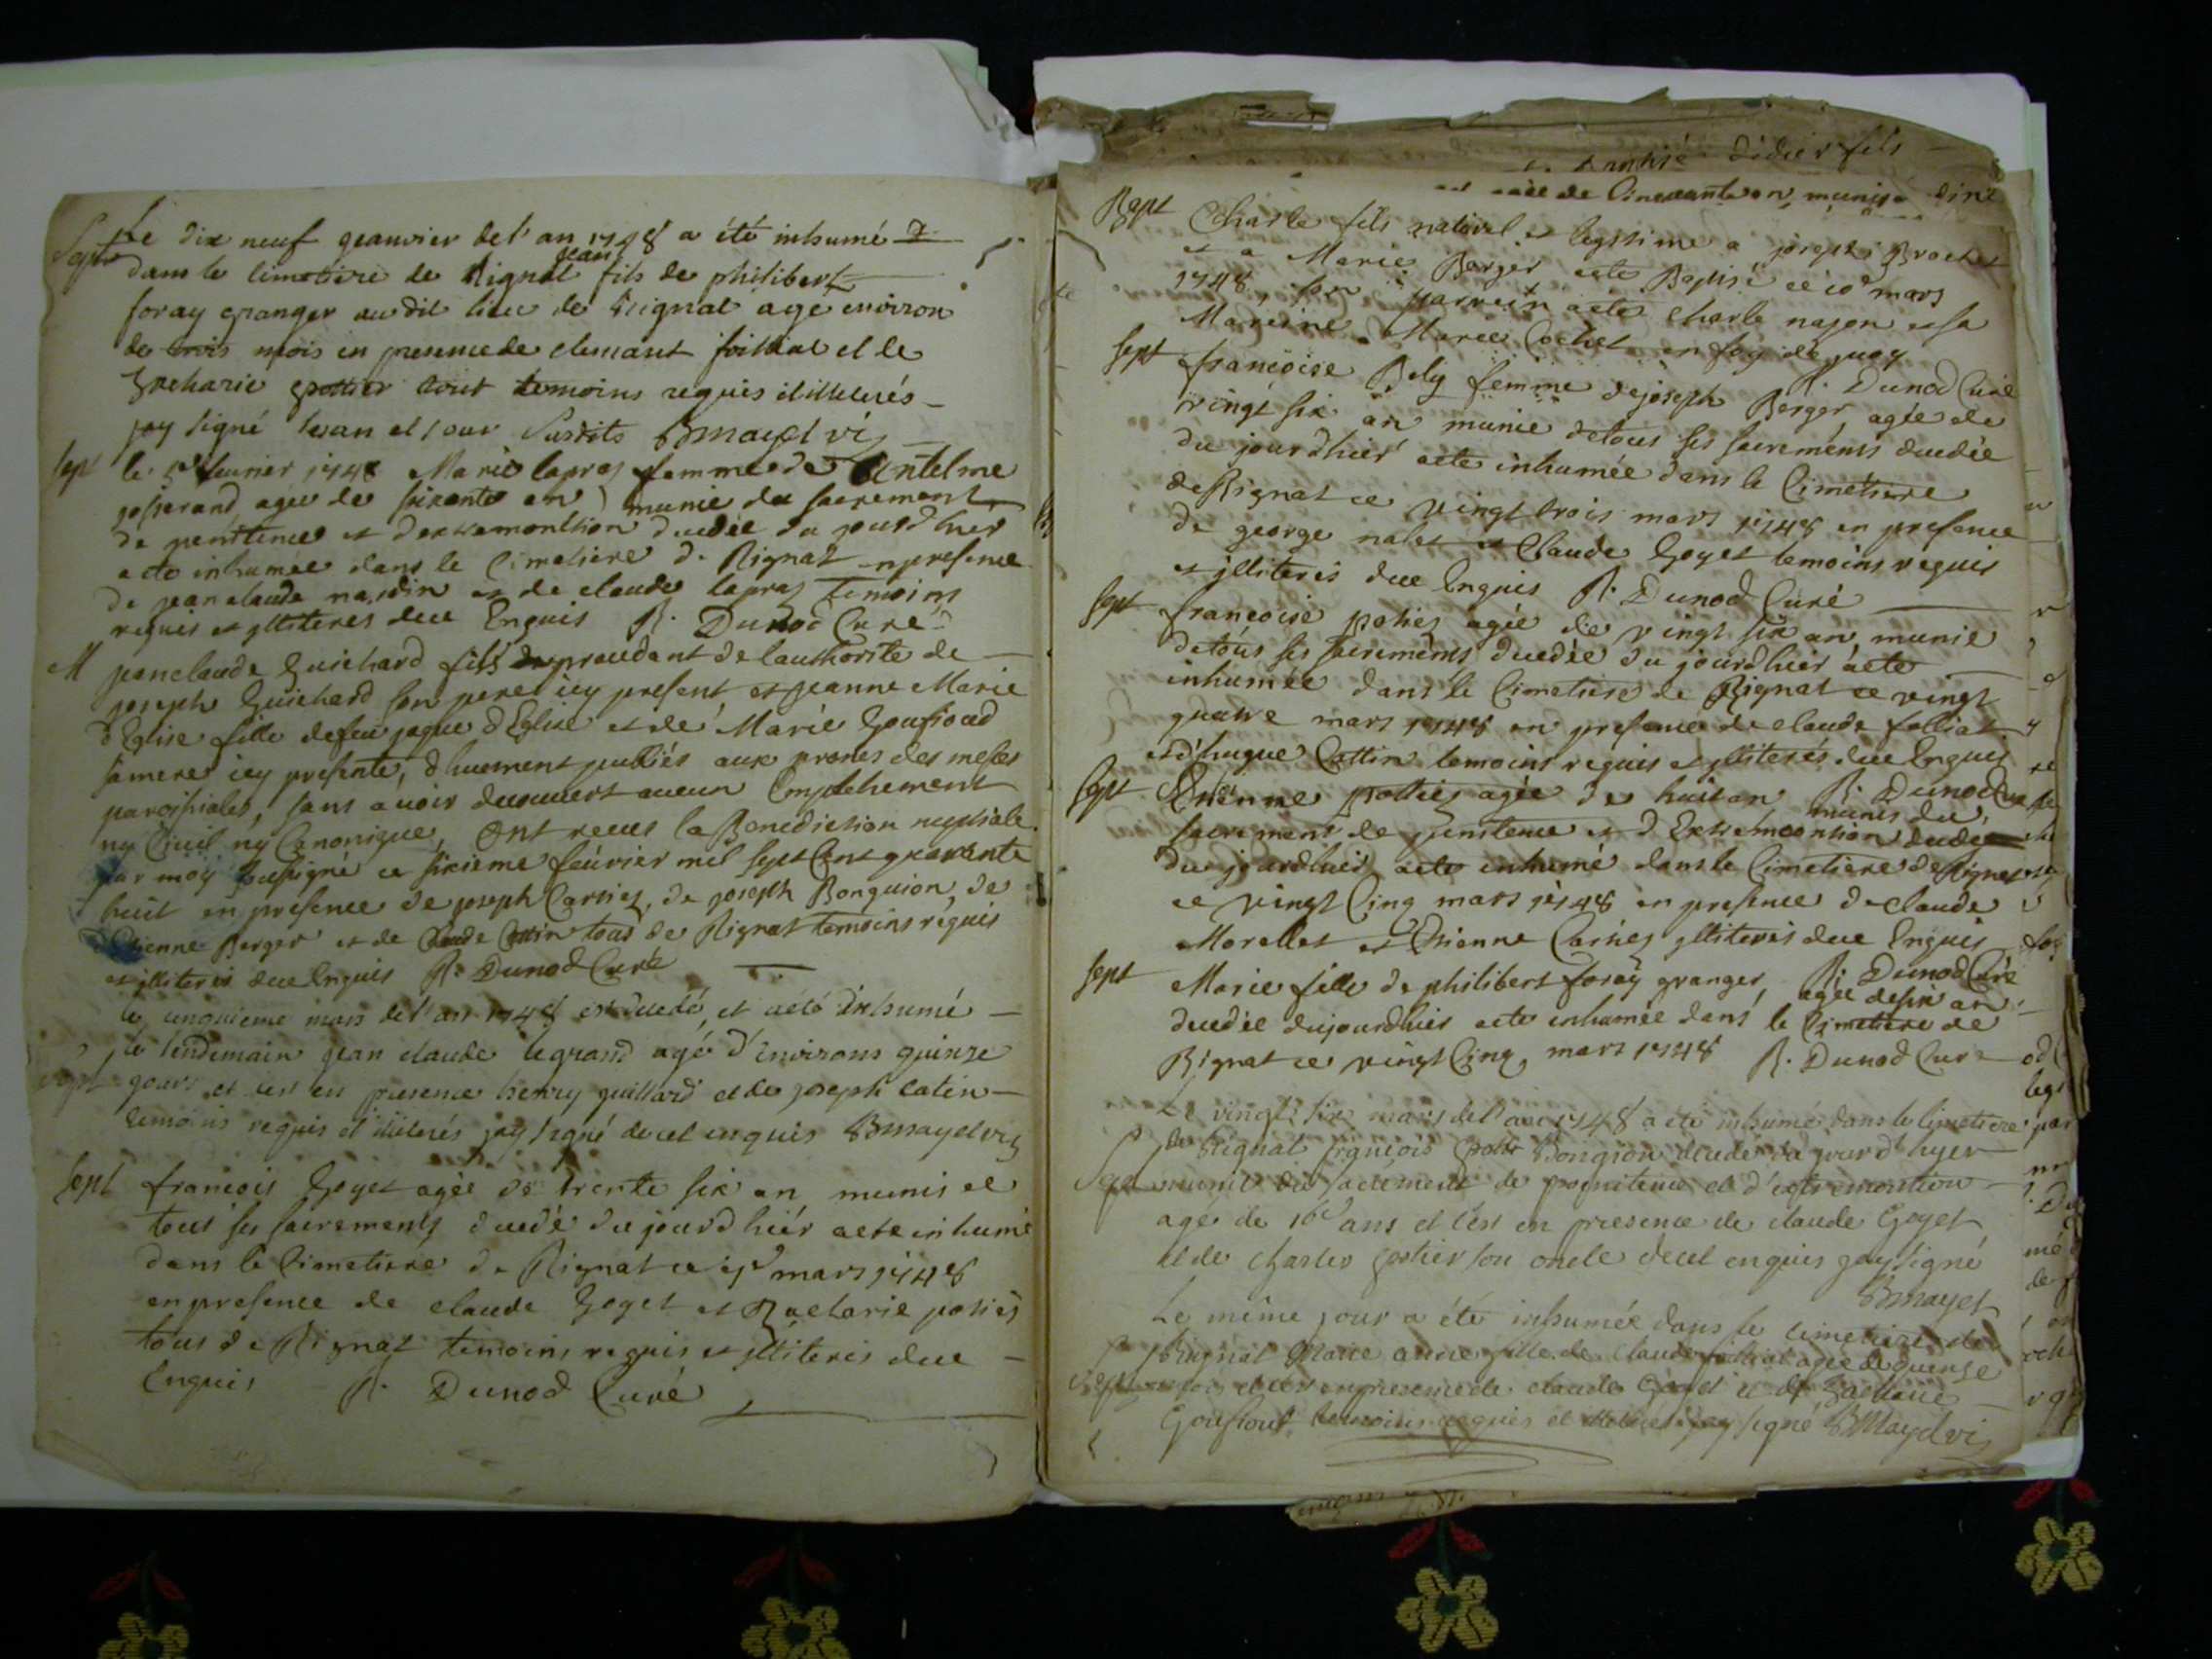 Le dix neuf geanvier de l'an 1748 a été inhumé
Sept dans le cimetiere de Rignat jean fils de philibert
foray granger au dit lieu de Rignat agé environ
de trois mois en presence de clemant et le
Zacharie pottier tout temoins requis et illiterés
jay signé l'an et jour susdits Bmayet vi
sept le 5e fevrier 1748 Marie lapraz femme de Antelme
josserand agée de sixante an munie du sacrement
de penitence et d'extremonltion ducedée du jourdhier
a ete inhumée dans le Cimetiere de Rignat en presence
de jean claude nardin et de claude lapraz temoins
requis et jlliteres dece Enquis R. Dunod Curé
M jean claude Guichard fils procedant de lauthorité de
joseph Guichard son pere icy present et jeanne Marie
d'Eglise fille defeu jaque d'Eglise et de Marie Goussoud
samere icy presente, dhuement publiés aux prones des messes
paroissiales, sans avoir decouvert aucun Empechement
ny Civil ny Canonique, ont receus la Benediction nuptiale
par moy soussigné ce sixieme fevrier mil sept Cent quarante
huit en presence de joseph Carriez, de joseph Bonguion, de
Etienne Berger et de Claude Cottin tous de Rignat temoins requis
et jlliteres dece Enquis R. Dunod Curé
le cinquieme mars de l'an 1748 est decedé, et a eté inhumé
le lendemain jean claude legrand agé d'environs quinze
sept jours et ce en presence henry guillard et de joseph catin
temoins requis et illiterés jay signé de cel enquis Bmayet vi
sept francois Goyet agée de trente six an munis de
tous ses sacrements ducedé du jourdhier a ete inhumé
dans le Cimetiere de Rignat ce mars 1748
en presence de claude Goyet et Zacharie potier
tous de Rignat temoins requis et jlliteres dece
Enquis R. Dunod Curé
didier fils
agée de Cinquante an munis
Bapt Charle fils naturel et legitime a joseph Brochet
et a Marie Berger a ete Baptisé ce 10e mars
1748, son parrein a ete Charle najon et sa
Mareine Marie Cochet en foy de quoy
R. Dunod Curé
sept francoise Bely femme de joseph Berger agée de
vingt six an munie detous ses sacrements ducedée
du jourdhier a ete inhumée dans le Cimetiere
de Rignat ce vingt trois mars 1748 en presence
de george nalet et Claude Goyet temoins requis
et jlliteres dece Enquis R. Dunod Curé
sept francoise potiez agée de vingt six an munie
detous ses sacrements ducedée du jourdhier a ete
inhumée dans le Cimetiere de Rignat ce vingt
quatre mars 1748 en presence de claude folliat
et d'hugue Cottin temoins requis et jlliteres dece Enquis
R. Dunod Curé
sept Etienne pottiez agée de huit an munis du
sacrement de penitence et d'Extremoontion decedé
du jourdhier a ete inhumé dans le Cimetiere de Rignat
ce vingt Cinq mars 1748 en presence de claude
Morellet et Etienne Carriez jlliteres dece Enquis
R. Dunod Curé
sept Marie fille de philibert foray granger, agée desix an
ducedée dujourdhier a ete inhumée dans le Cimetiere de
Rignat ce vingt Cinq mars 1748 R. Dunod Curé
Le vingt six mars de l'an 1748 a eté inhumé dans le cimetiere
de Rignat françois Bongion decedé du jourd'hyer
Sept munit du sacrement de poenitence et d'extremontion
agé de 16 ans et c'est en presence de claude Goyet
et de charles potier son oncle decel enquis jay signé
Bmayet
Le même jour a été inhumée dans le cimetiere de
Rignat Marie anne fille de Claude folliat agée de quinse
sept mois et ce en presence de claude Goyet et de Zacharie
Goussout temoins requis et illiterés jay signé BMayet vi